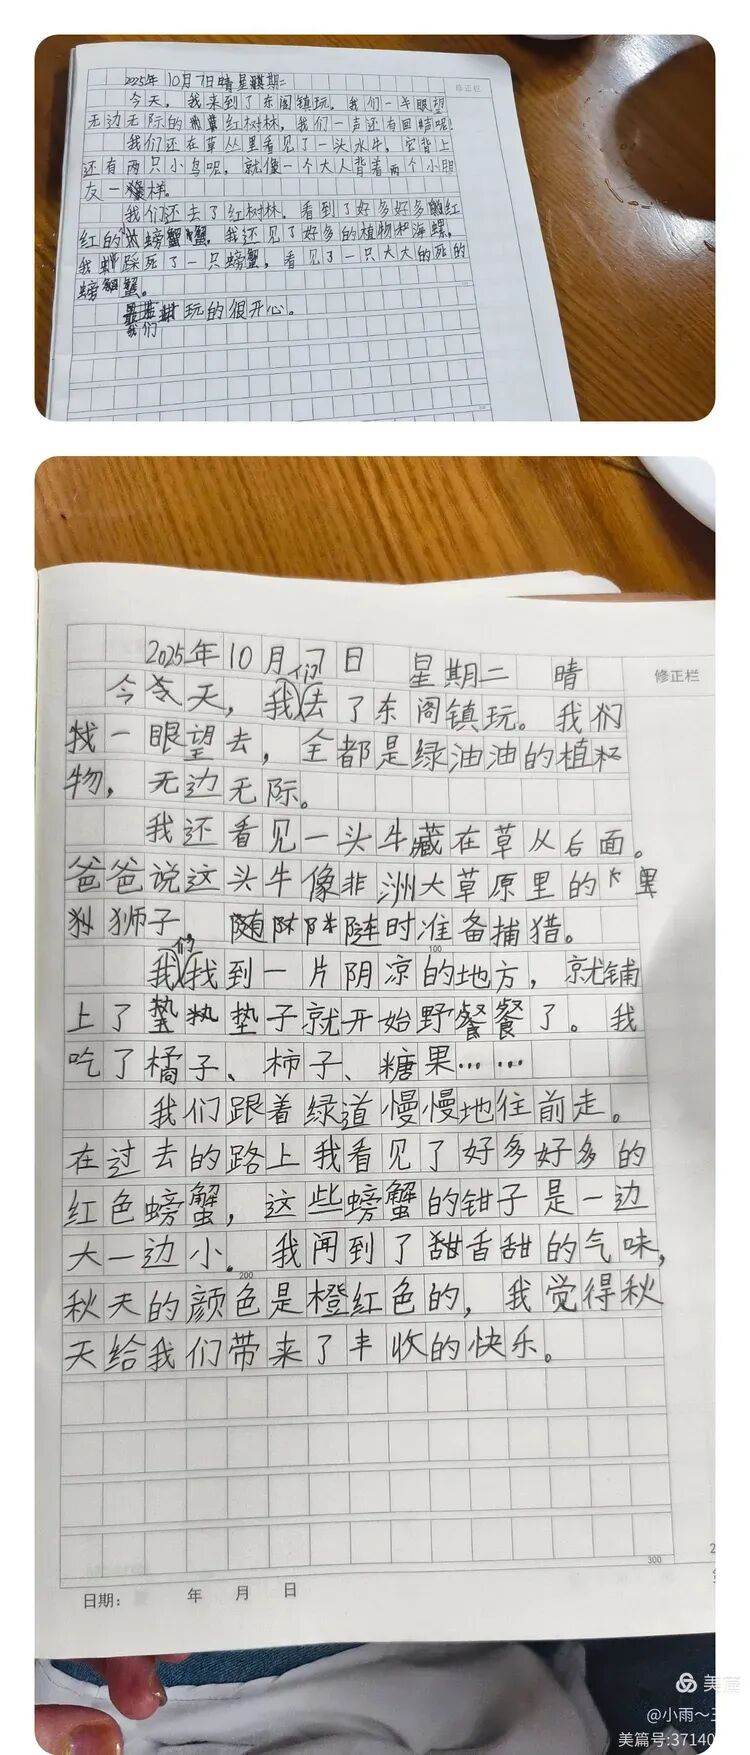 2025年10月7日晴星期二
修正栏
今天，我来到了东阁镇玩，我们一半眼望
无边无际的红树林，我们一声还有回声呢！
我们还在草丛里看见了一头水牛，它背上
还有两只小鸟呢，就像一个大人背着两个小朋
友一样。
我们还去了红树林，看到了好多好多红
红的螃蟹，我还见了好多的植物和海螺。
我踩死了一只螃蟹，看见了一只大大的死的
螃蟹。
我们玩的很开心。
2025年10月7日 星期二 晴
修正栏
今天，我们去了东阁镇玩。我们
一眼望去，全都是绿油油的植
物，无边无际。
我还看见一头牛藏在草从后面。
爸爸说这头牛像非洲大草原里的
狮子 随时准备捕猎。
100
我们找到一片阴凉的地方，就铺
上了垫子就开始野餐了。我
吃了橘子、柿子、糖果……
我们跟着绿道慢慢地往前走。
在过去的路上我看见了好多好多的
红色螃蟹，这些螃蟹的钳子是一边
大一边小。我闻到了甜香甜的气味，
200
秋天的颜色是橙红色的，我觉得秋
天给我们带来了丰收的快乐。
300
日期： 年 月 日
美篇
@小雨～王
美篇号:37140